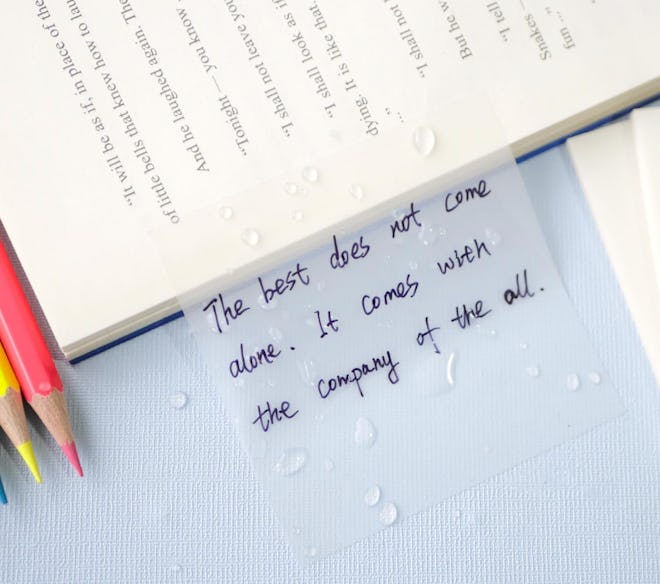 "It will be as if, in place of the
of little bells that knew how to lau
And he laughed again. The
"Tonight — you know
"I shall not leave you
"I shall look as if
dying. It is like that.
..."
"I shall not
But he w
"I tell
Snakes
fun ..."
The best does not come
alone. It comes with
the company of the all.